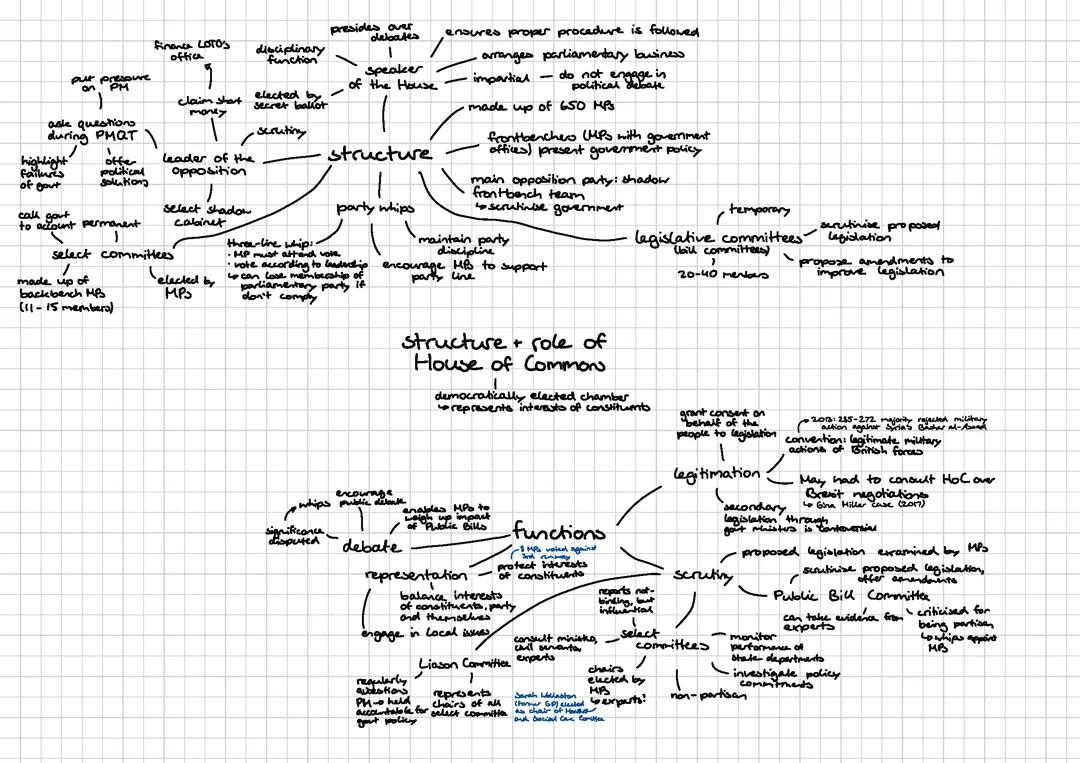 presides over
debates
ensures proper procedure is followed
finance LOTO's
office
disciplinary
function
speaker
of the House
arranges parliamentary business
impartial — do not engage in
political debate
put pressure
on PM
claim short
money
elected by
secret ballot
made up of 650 MPs
ask questions
during PMQT
scrutiny
highlight
failures
of govt
offer
political
solutions
leader of the
opposition
structure
frontbenchers (MPs with government
offices) present government policy
main opposition party: shadow
frontbench team
↳ scrutinise government
select shadow
cabinet
party whips
call govt
to account
permanent
select committees
made up of
backbench MPs
(11-15 members)
elected by
MPs
three-line whip:
• MP must attend vote
• vote according to leadership
↳ can lose membership of
parliamentary party if
don't comply
maintain party
discipline
encourage MPs to support
party line
temporary
legislative committees
(bill committees)
20-40 members
scrutinise proposed
legislation
propose amendments to
improve legislation
structure + role of
House of Commons
democratically elected chamber
↳ represents interests of constituents
grant consent on
behalf of the
people to legislation
2013: 285-272 majority rejected military
action against Syria's Bashar al-Assad
convention: legitimate military
actions of British forces
legitimation
May had to consult HoC over
Brexit negotiations
↳ Gina Miller case (2017)
secondary
legislation through
govt ministers is controversial
functions
whips
encourage
public debate
enables MPs to
weigh up impact
of Public Bills
significance
disputed
debate
8 MPs voted against
3rd runway
representation
protect interests
of constituents
balance interests
of constituents, party
and themselves
engage in local issues
scrutiny
proposed legislation examined by MPs
scrutinise proposed legislation,
offer amendments
Public Bill Committee
can take evidence from
experts
criticised for
being partisan
↳ whips appoint
MPs
reports not-
binding, but
influential
consult ministers,
civil servants,
experts
select
committees
monitor
performance of
state departments
investigate policy
commitments
non-partisan
chairs
elected by
MPs
↳ experts!
Sarah Wollaston
(former GP) elected
as chair of Health
and Social Care Comittee
Liason Committee
regularly
questions
PM → held
accountable for
govt policy
represents
chairs of all
select committees